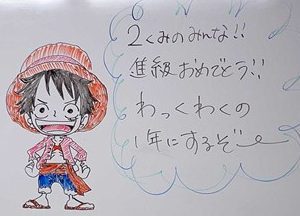 2くみのみんな!!
進級おめでとう!!
わっくわくの
1年にするぞー